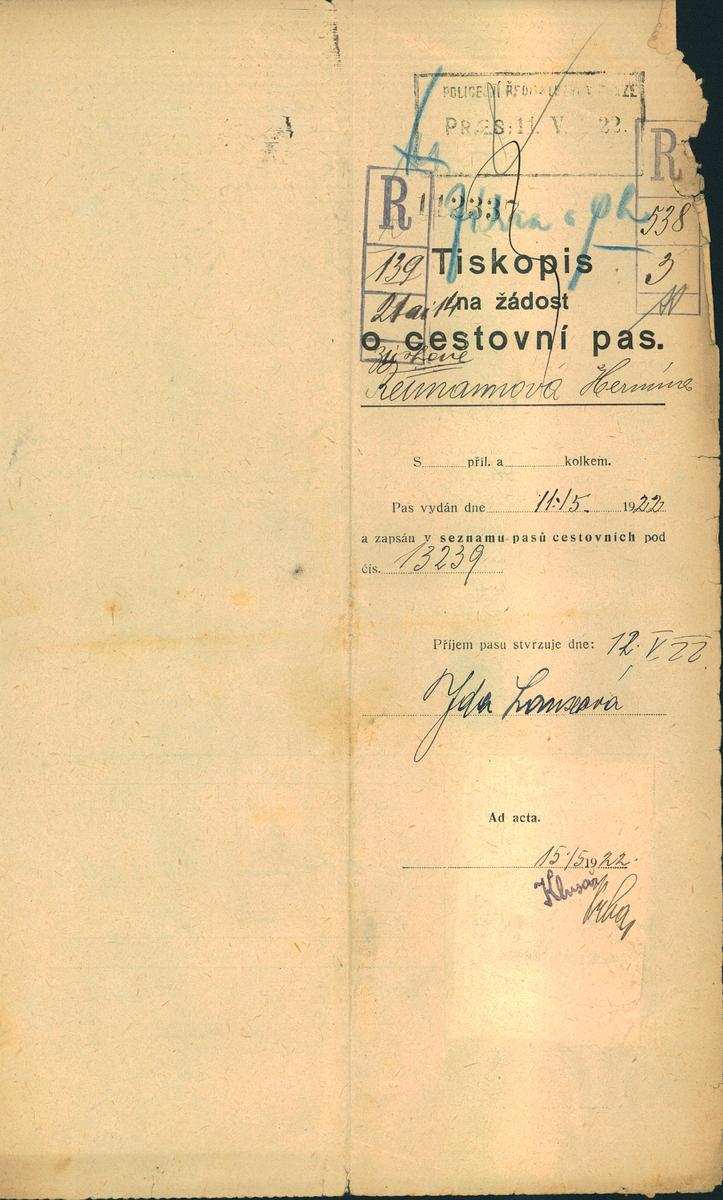 POLICEJNÍ ŘEDITELSTVÍ V PRAZE
PRÆS: 11. V. 22.
R
R
112337
538
139
3
Tiskopis
na žádost
o cestovní pas.
Reimannová Hermína
S příl. a kolkem.
Pas vydán dne 11./5. 1922
a zapsán v seznamu pasů cestovních pod
čís. 13239
Příjem pasu stvrzuje dne: 12. V. 22.
Ida
Ad acta.
15./5 1922.